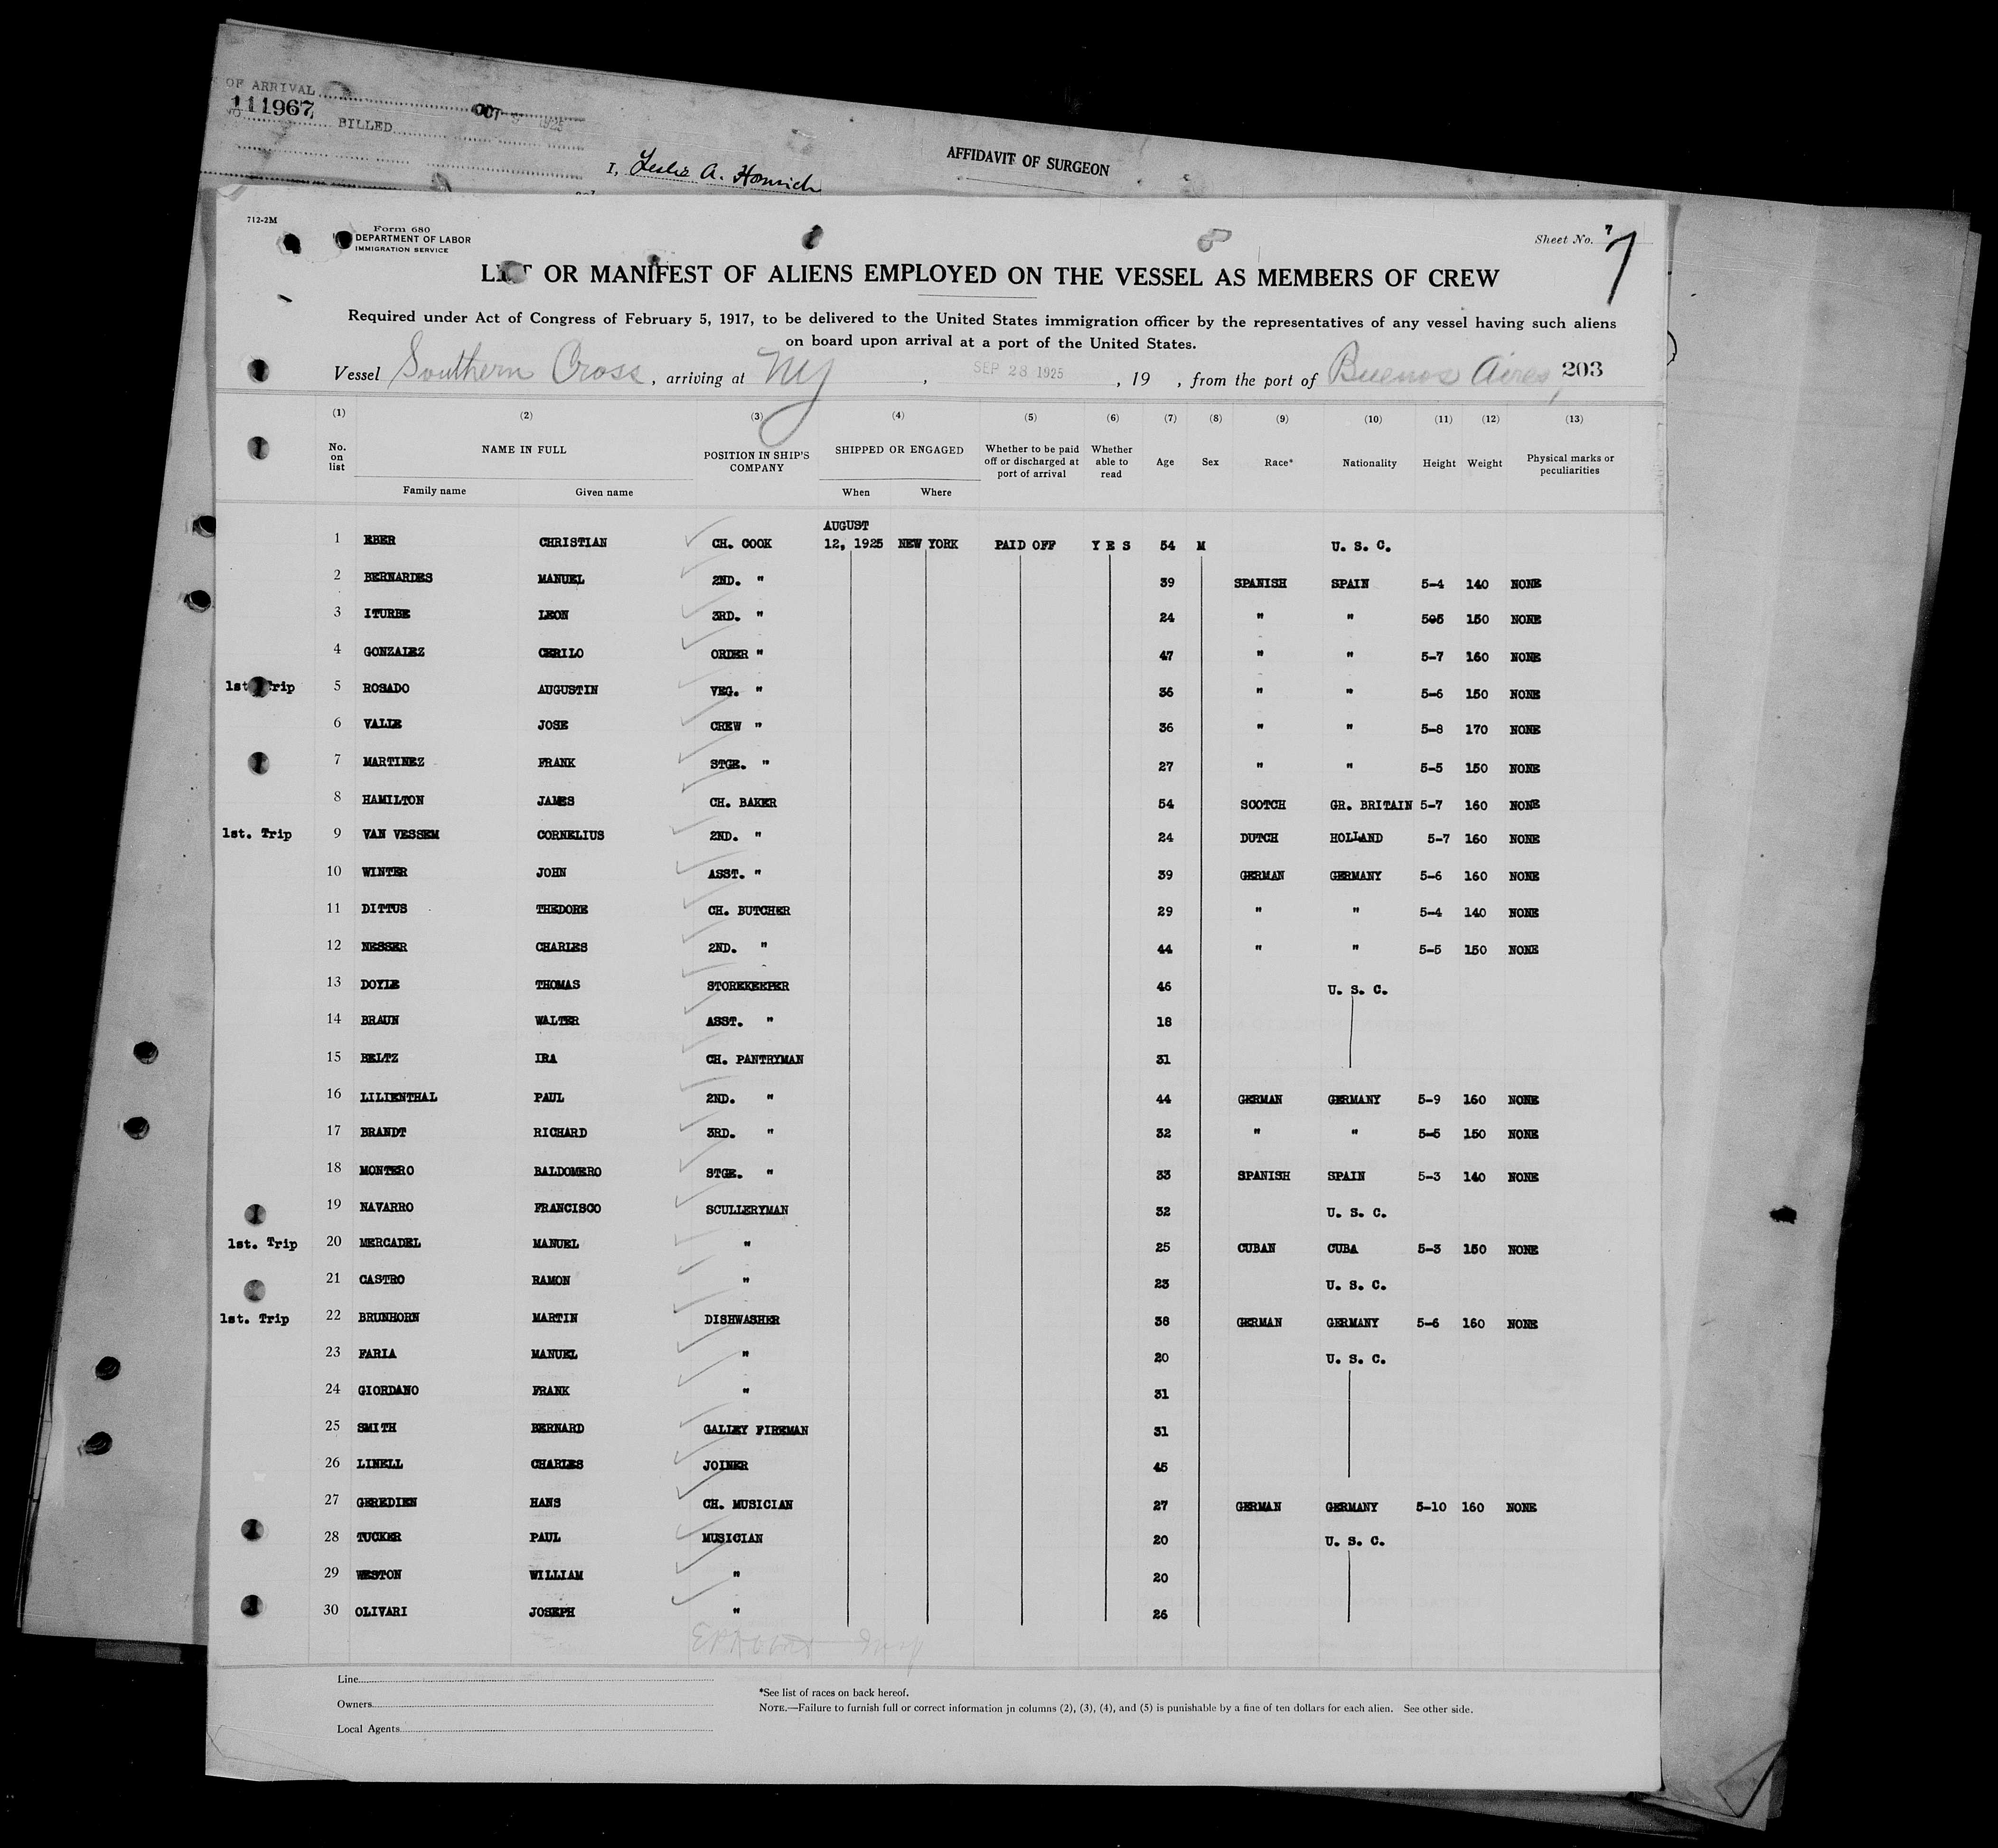 OF ARRIVAL
111967 OCT 1925
BILLED
I, Leslie A.
AFFIDAVIT OF SURGEON
712-2M
Form 680
DEPARTMENT OF LABOR
IMMIGRATION SERVICE
8
Sheet No. 7 7
LIST OR MANIFEST OF ALIENS EMPLOYED ON THE VESSEL AS MEMBERS OF CREW
Required under Act of Congress of February 5, 1917, to be delivered to the United States immigration officer by the representatives of any vessel having such aliens
on board upon arrival at a port of the United States.
Vessel Southern Cross, arriving at NY, SEP 28 1925, 19 , from the port of Buenos Aires, 203
(1) (2) (3) (4) (5) (6) (7) (8) (9) (10) (11) (12) (13)
No. on list NAME IN FULL POSITION IN SHIP'S COMPANY SHIPPED OR ENGAGED Whether to be paid off or discharged at port of arrival Whether able to read Age Sex Race* Nationality Height Weight Physical marks or peculiarities
Family name Given name When Where
1 EBER CHRISTIAN CH. COOK AUGUST 12, 1925 NEW YORK PAID OFF YES 54 M U. S. C.
2 BERNARDES MANUEL 2ND. " 39 SPANISH SPAIN 5-4 140 NONE
3 ITURBE LEON 3RD. " 24 " " 505 150 NONE
4 GONZALEZ CERILO ORDER " 47 " " 5-7 160 NONE
1st. Trip 5 ROSADO AUGUSTIN VEG. " 36 " " 5-6 150 NONE
6 VALLE JOSE CREW " 36 " " 5-8 170 NONE
7 MARTINEZ FRANK STGE. " 27 " " 5-5 150 NONE
8 HAMILTON JAMES CH. BAKER 54 SCOTCH GR. BRITAIN 5-7 160 NONE
1st. Trip 9 VAN VESSEM CORNELIUS 2ND. " 24 DUTCH HOLLAND 5-7 160 NONE
10 WINTER JOHN ASST. " 39 GERMAN GERMANY 5-6 160 NONE
11 DITTUS THEDORE CH. BUTCHER 29 " " 5-4 140 NONE
12 NESSER CHARLES 2ND. " 44 " " 5-5 150 NONE
13 DOYLE THOMAS STOREKEEPER 46 U. S. C.
14 BRAUN WALTER ASST. " 18
15 BELTZ IRA CH. PANTRYMAN 31
16 LILIENTHAL PAUL 2ND. " 44 GERMAN GERMANY 5-9 160 NONE
17 BRANDT RICHARD 3RD. " 32 " " 5-5 150 NONE
18 MONTERO BALDOMERO STGE. " 33 SPANISH SPAIN 5-3 140 NONE
19 NAVARRO FRANCISCO SCULLERYMAN 32 U. S. C.
1st. Trip 20 MERCADEL MANUEL " 25 CUBAN CUBA 5-3 150 NONE
21 CASTRO RAMON " 23 U. S. C.
1st. Trip 22 BRUNHORN MARTIN DISHWASHER 38 GERMAN GERMANY 5-6 160 NONE
23 FARIA MANUEL " 20 U. S. C.
24 GIORDANO FRANK " 31
25 SMITH BERNARD GALLEY FIREMAN 31
26 LINELL CHARLES JOINER 45
27 GEREDIEN HANS CH. MUSICIAN 27 GERMAN GERMANY 5-10 160 NONE
28 TUCKER PAUL MUSICIAN 20 U. S. C.
29 WESTON WILLIAM " 20
30 OLIVARI JOSEPH " 26
Line
Owners
Local Agents
*See list of races on back hereof.
NOTE.—Failure to furnish full or correct information in columns (2), (3), (4), and (5) is punishable by a fine of ten dollars for each alien. See other side.